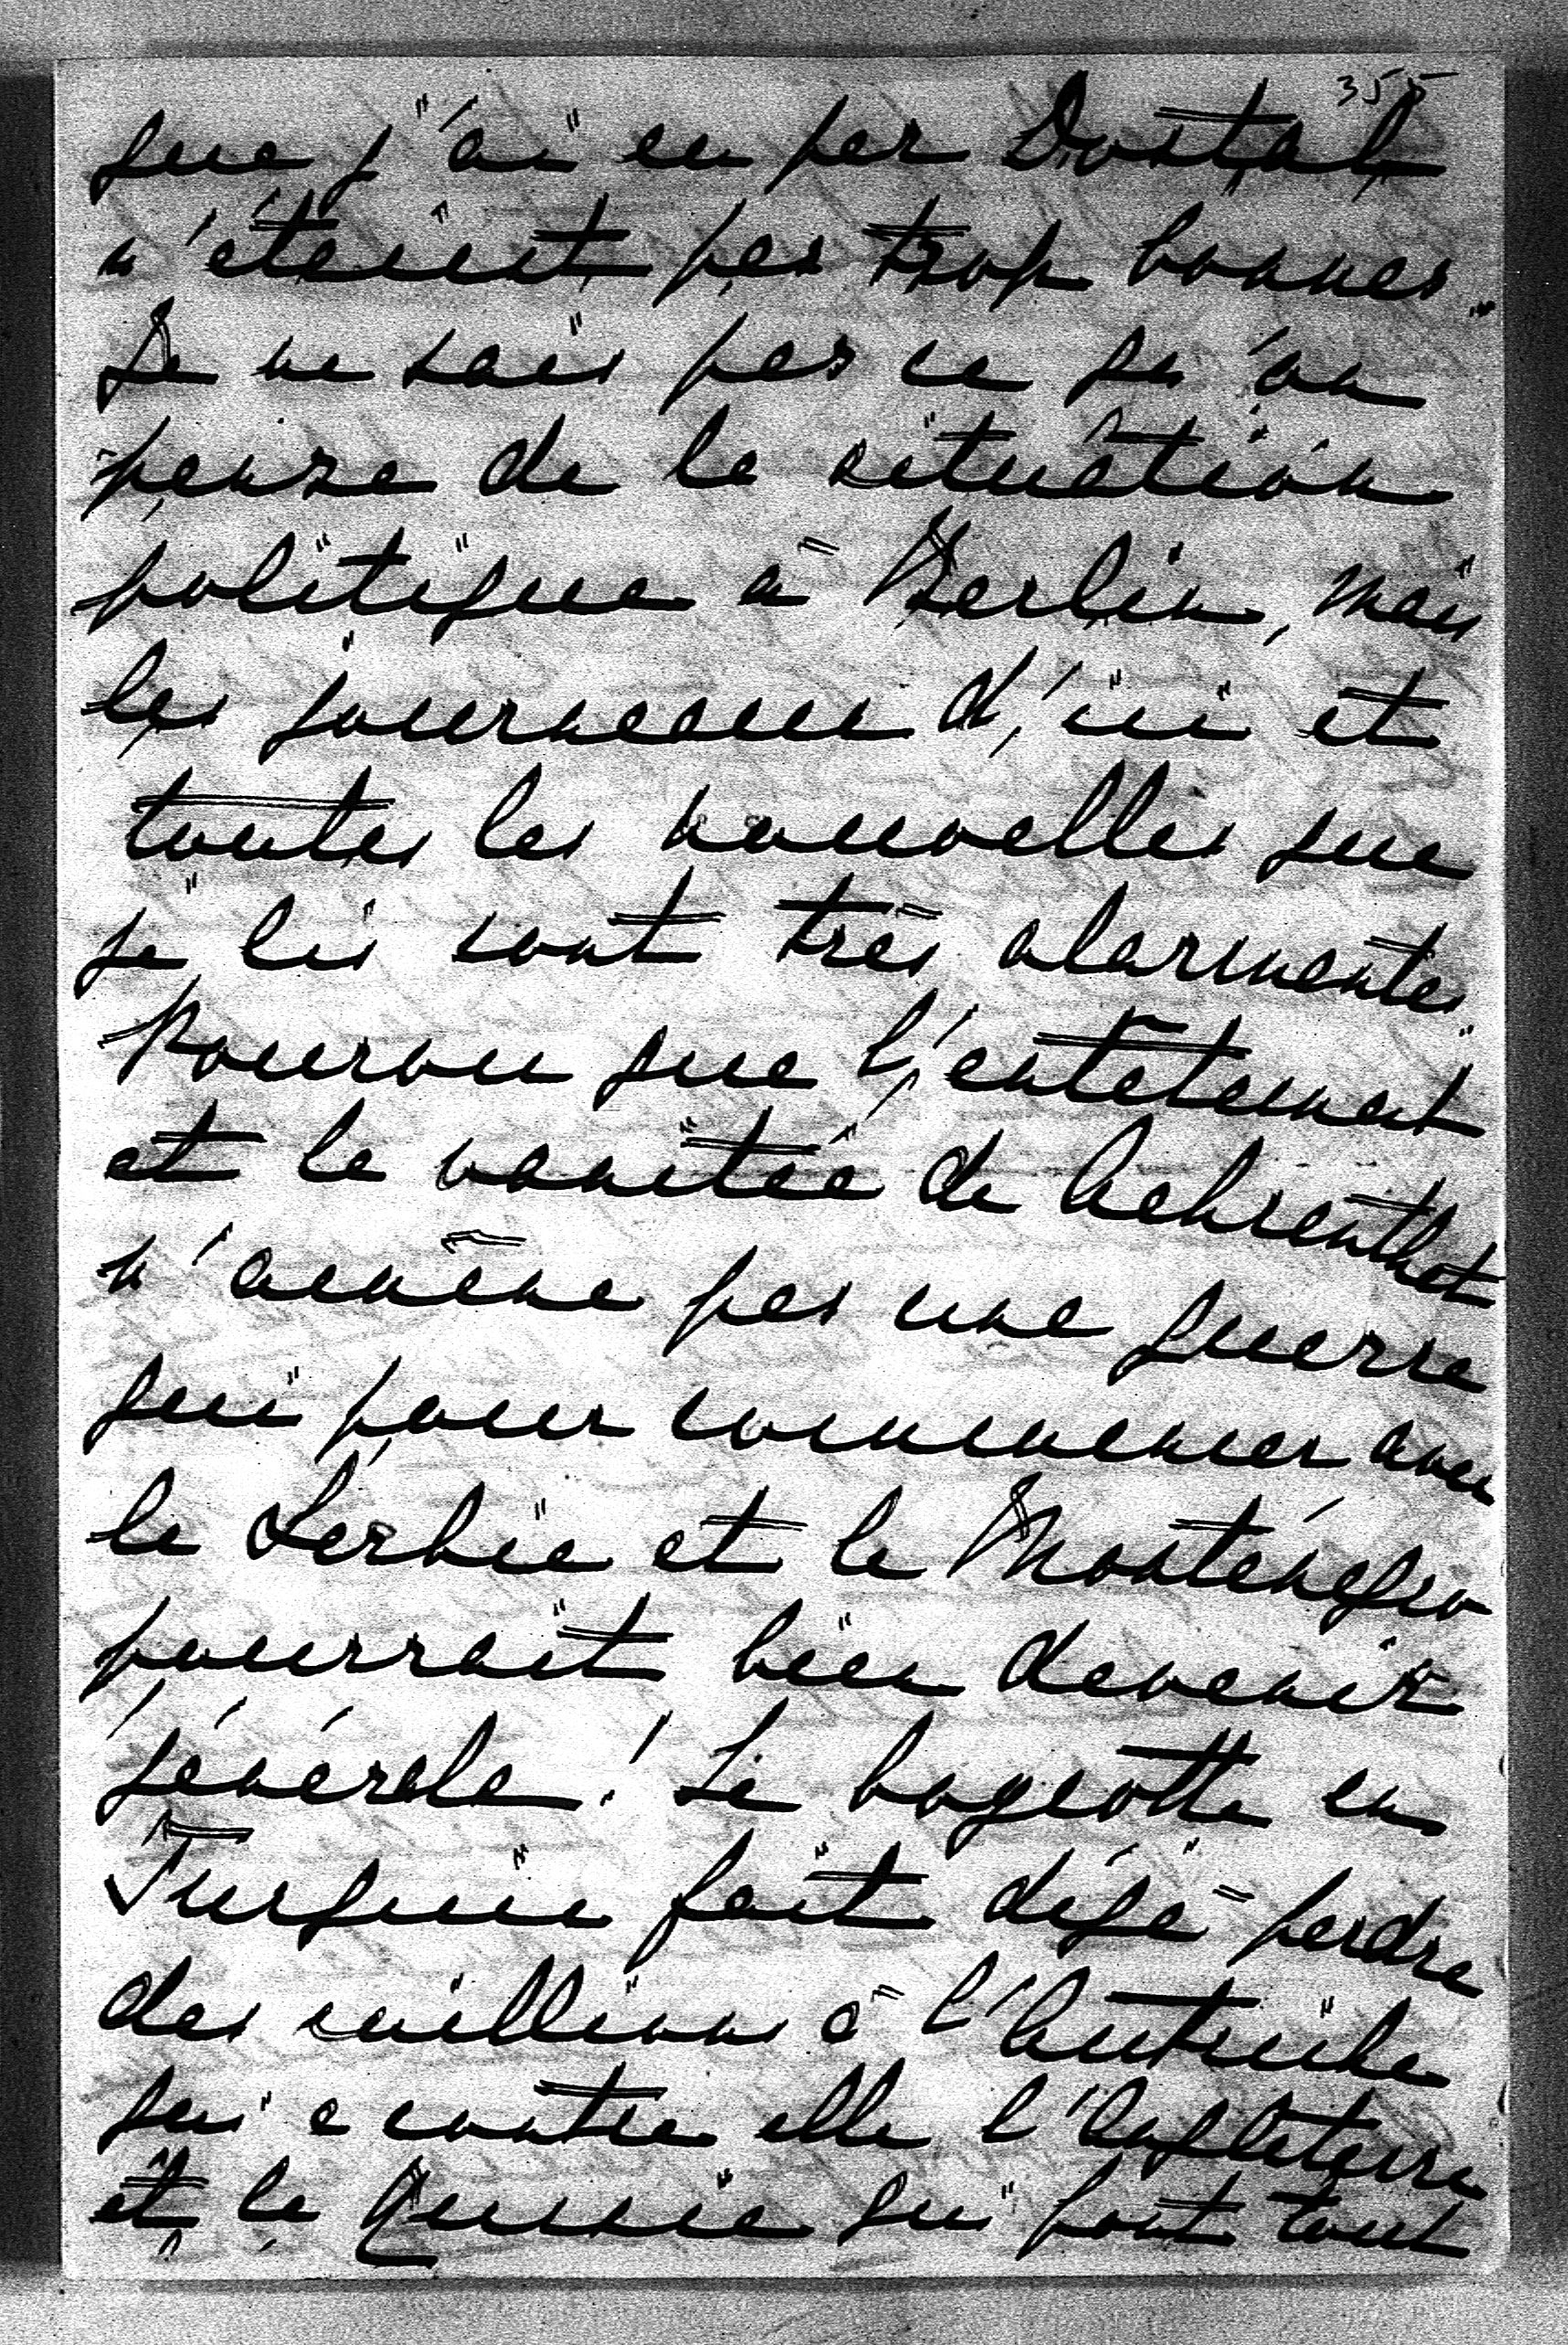 355
que j'ai eu par Dostal
n'étaient pas trop bonnes.
Je ne sais pas ce qu'on
pense de la situation
politique à Berlin, mais
les journeaux d'ici et
toutes les nouvelles que
je lis sont très alarmantes
Pourvu que l'entêtement
et la vanitée de Aehrenthal
n'amène pas une guerre
qui pour commencer avec
la Serbie et le Monténégro
pourrait bien devenir
générale! Le boycotte en
Turquie fait déjà perdre
des millions à l'Autriche
qui a contre elle l'Angleterre
et la Russie qui font tout